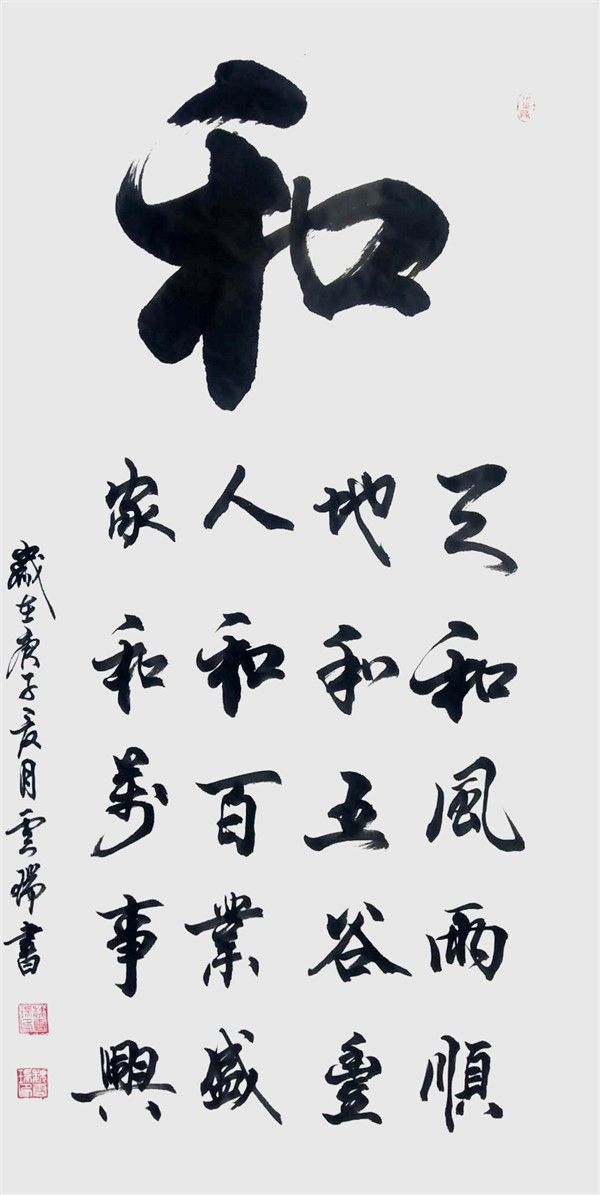 和
天和風雨順
地和五谷豐
人和百業盛
家和萬事興
歲在庚子夏月雲瑞書